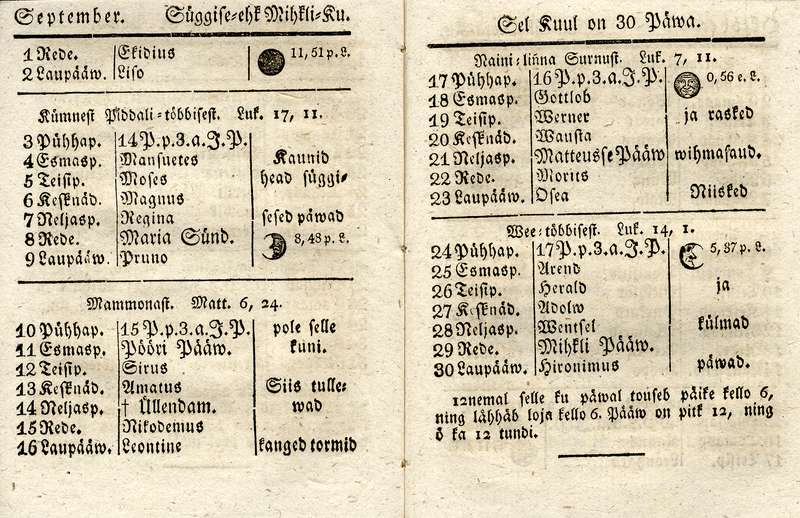 September. Süggise-ehk Mihkli-Ku.
1 Rede. Ekidius 11, 51 p. L.
2 Laupääw. Liso
Kümnest Piddali-többisest. Luk. 17, 11.
3 Pühhap. 14 P. p. 3. a. J. P.
4 Esmasp. Mansuetes Kaunid
5 Teisip. Moses head süggi-
6 Keßknäd. Magnus
7 Neljasp. Regina sesed päwad
8 Rede. Maria Sünd. 8, 48 p. L.
9 Laupääw. Pruno
Mammonast. Matt. 6, 24.
10 Pühhap. 15 P. p. 3. a. J. P. pole selle
11 Esmasp. Pööri Pääw. kuni.
12 Teisip. Sirus
13 Keßknäd. Amatus Siis tulle-
14 Neljasp. † Üllendam. wad
15 Rede. Nikodemus
16 Laupääw. Leontine kanged tormid
Sel Kuul on 30 Päwa.
Naini-liñna Surnust. Luk. 7, 11.
17 Pühhap. 16 P. p. 3. a. J. P. 0, 56 e. L.
18 Esmasp. Gottlob
19 Teisip. Werner ja rasked
20 Keßknäd. Wausta
21 Neljasp. Matteusse Pääw wihmasaud.
22 Rede. Morits
23 Laupääw. Osea Niisked
Wee-többisest. Luk. 14, 1.
24 Pühhap. 17 P. p. 3. a. J. P. 5, 37 p. L.
25 Esmasp. Arend
26 Teisip. Herald ja
27 Keßknäd. Adolw
28 Neljasp. Wentsel külmad
29 Rede. Mihkli Pääw.
30 Laupääw. Hironimus päwad.
12nemal selle ku päwal touseb päike kello 6,
ning lähhäb loja kello 6. Pääw on pitk 12, ning
ö ka 12 tundi.